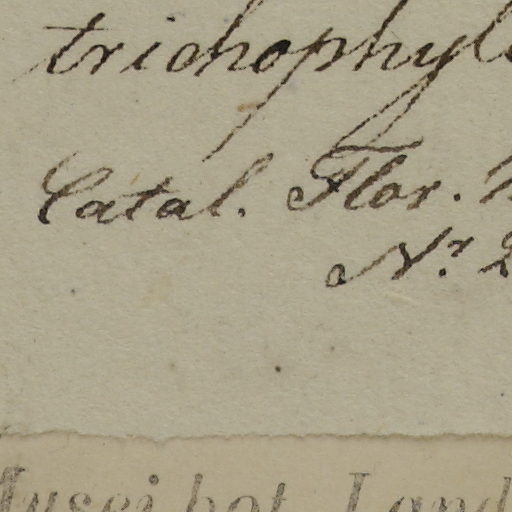 trichophyl
Catal. Flor.
Nr. 2
Musei bot. Land